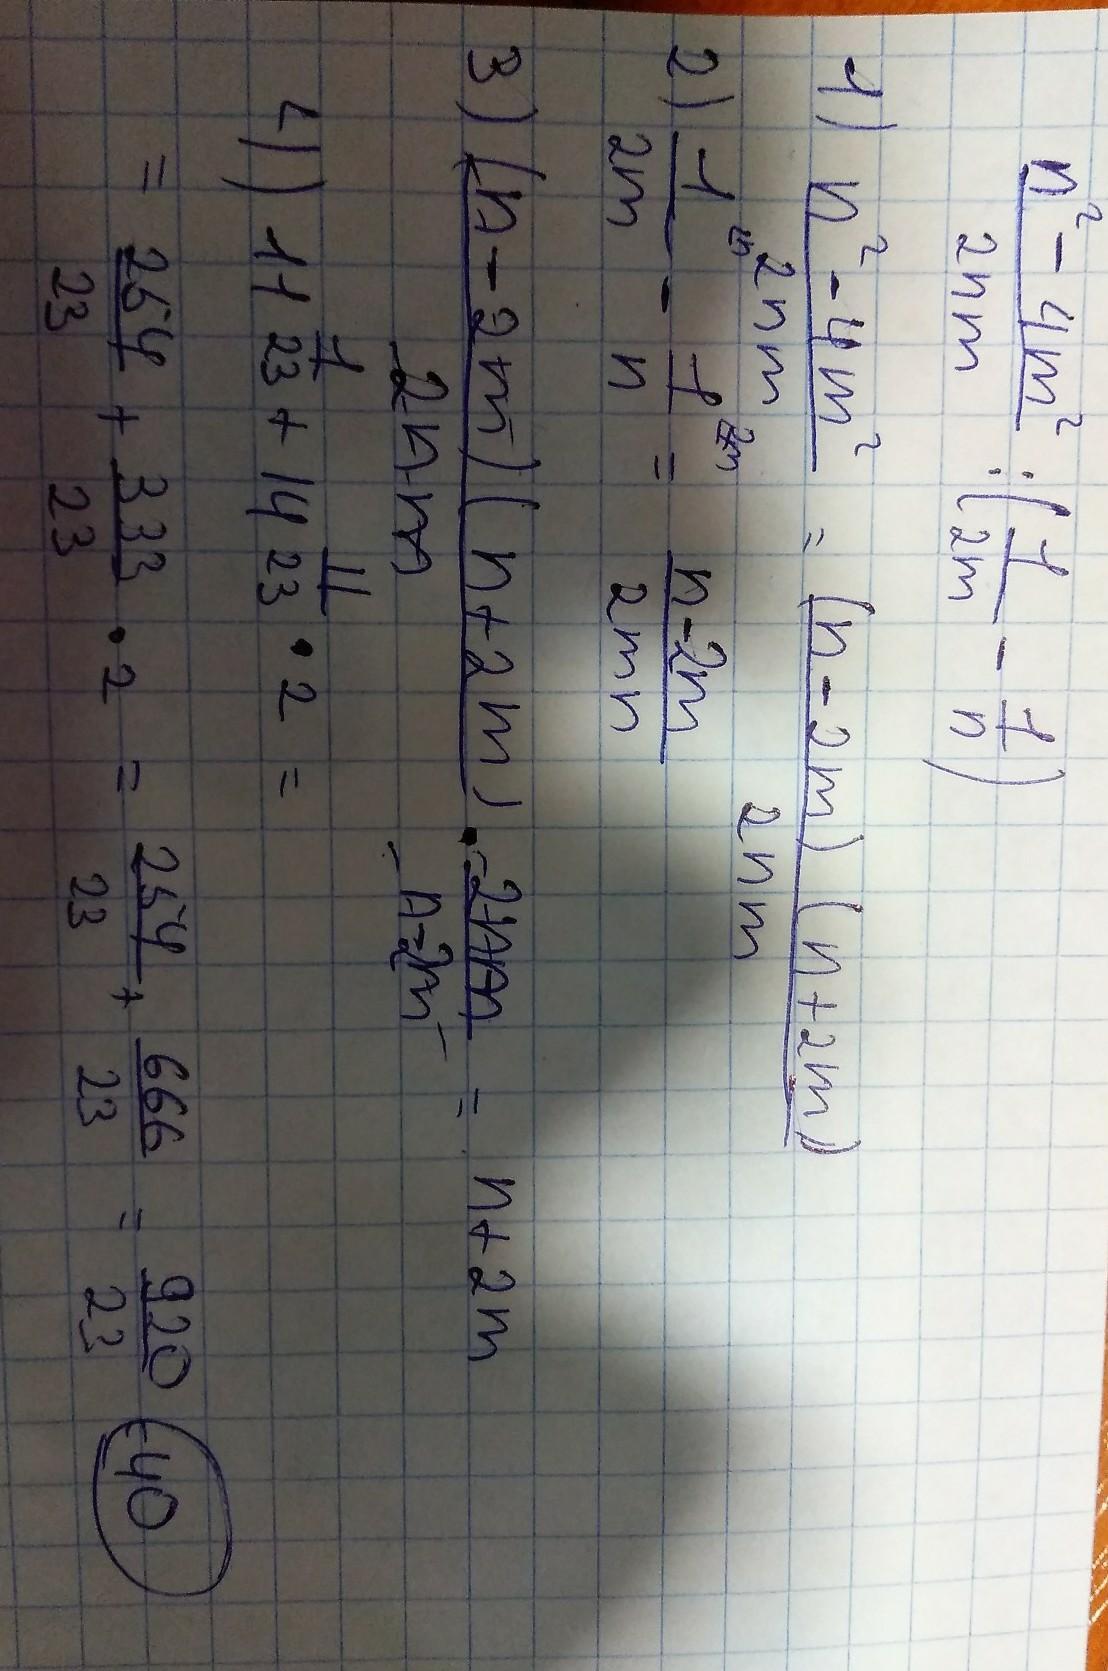 n² - 4m² / 2nm : (1/2m - 1/n)
1) n² - 4m² / 2nm = (n - 2m)(n + 2m) / 2nm
2) 1/2m - 1/n = n - 2m / 2mn
3) (n - 2m)(n + 2m) / 2nm · 2nm / n - 2m = n + 2m
4) 11 1/23 + 14 11/23 · 2 =
= 254/23 + 333/23 · 2 = 254/23 + 666/23 = 920/23 = 40